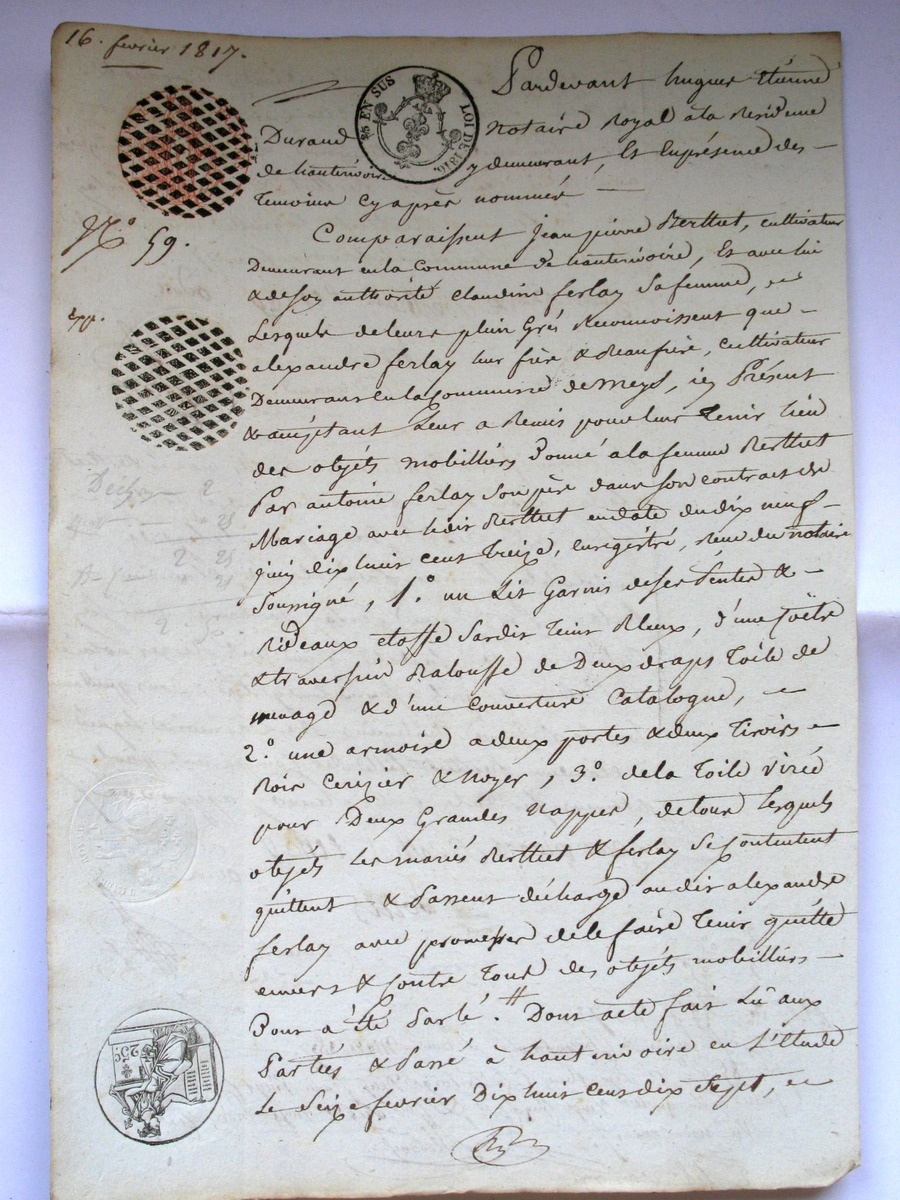 16. fevrier 1817.
Pardevant hugues Etienne
25 EN SUS LOI DE 1816.
Durand notaire Royal à la Residence
de hauterivoire y demeurant, Et Enprésence des
Temoins cy après nommés
N.º 59.
Comparaissent Jean pierre Berthet, cultivateur
Demeurant en la Commune de hauterivoire, Et avec lui
& de Soy authorité Claudine ferlay Sa femme,
Lesquels de leurs plein Grés Reconnoissent que
alexandre ferlay leur frère & Beaufrère, cultivateur
Demeurant en la Commune de Meys, icy Présent
& acceptant Leur a Remis pour leur Tenir lieu
des objéts mobilliers Donné à la femme Berthet
Par antoine ferlay Son père dans Son contract de
Mariage avec ledit Berthet en date du dix neuf
juin dix huit cent Treize, enregistré, Reçu du notaire
Soussigné, 1.º un Lit Garnis de Ses Pentes &
Rideaux étoffe Sardis Teint Bleux, d'une Coëtre
& traversier Balouffe de Deux draps Toile de
menage & d'une couverture Catalogne,
2.º une armoire a deux portes & deux Tiroirs
Bois Cerizier & Noyer, 3.º de la Toile virée
pour Deux Grandes Nappes, de tous Lesquels
objéts Les mariés Berthet & ferlay Se contentent
quittent & Passent décharge audit alexandre
ferlay avec promesse de le faire Tenir quitte
envers & contre Tous des objéts mobilliers
Dont a été Parlé. Dont acte fait Lû aux
Parties & Passé à hauterivoire en L'Etude
Le Seize fevrier Dix huit cent dix Sept,
25c.